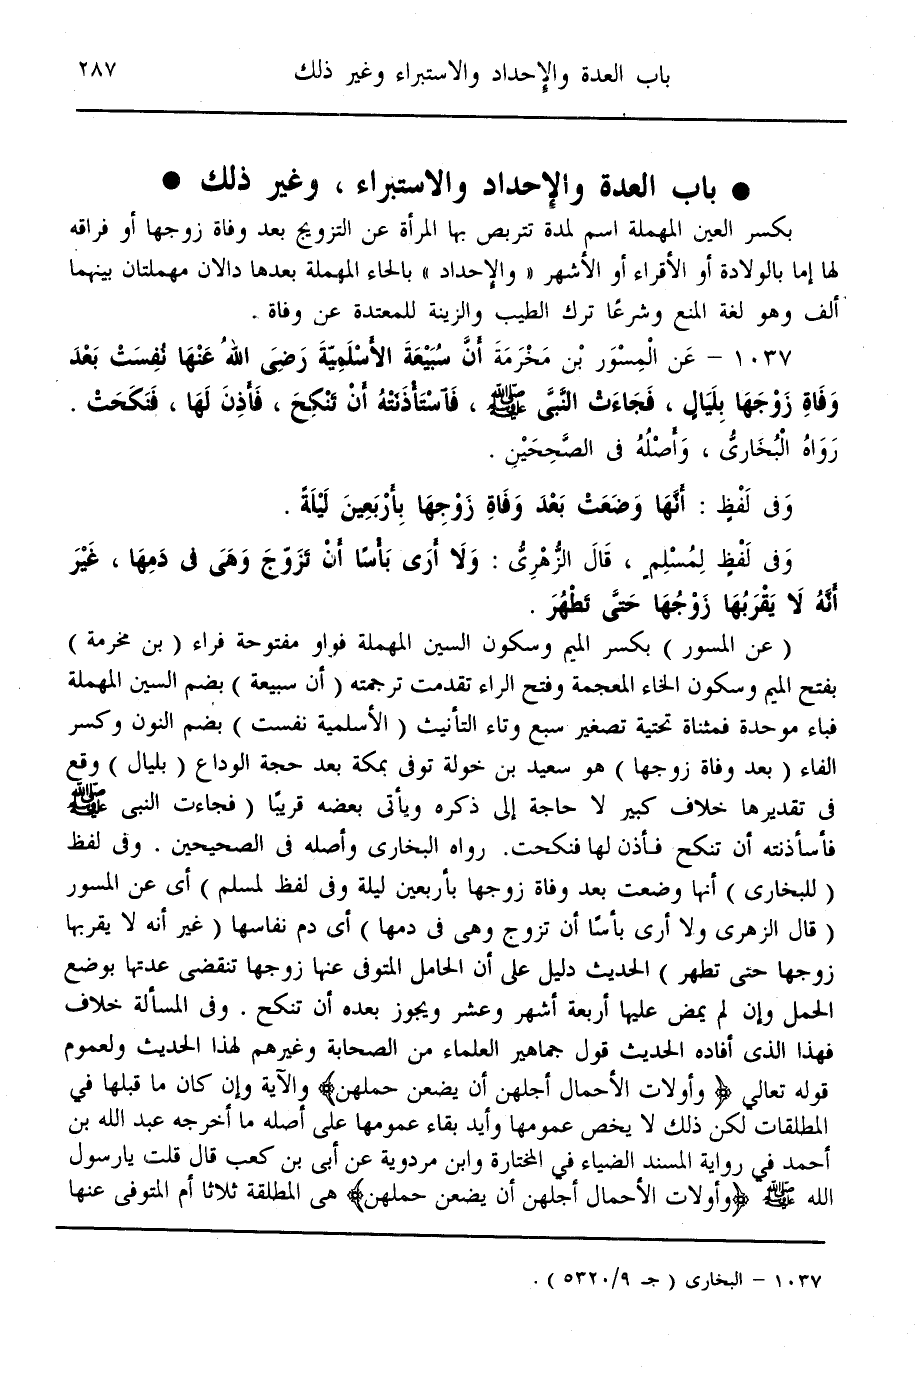 باب العدة والإحداد والاستبراء وغير ذلك ٢٨٧
● باب العدة والإحداد والاستبراء ، وغير ذلك ●
بكسر العين المهملة اسم لمدة تتربص بها المرأة عن التزويج بعد وفاة زوجها أو فراقه
لها إما بالولادة أو الأقراء أو الأشهر « والإحداد » بالحاء المهملة بعدها دالان مهملتان بينهما
ألف وهو لغة المنع وشرعًا ترك الطيب والزينة للمعتدة عن وفاة .
١٠٣٧ – عَن الْمِسْوَر بْن مَخْرَمَةَ أَنَّ سُبَيْعَةَ الأَسْلَمِيَّةَ رَضِىَ اللهُ عَنْهَا نُفِسَتْ بَعْدَ
وَفَاةِ زَوْجِهَا بِلَيَالٍ ، فَجَاءَتْ النَّبِىَّ ﷺ ، فَآسْتَأْذَنَتْهُ أَنْ تَنْكِحَ ، فَأَذِنَ لَهَا ، فَنَكَحَتْ .
رَوَاهُ الْبُخَارِىُّ ، وَأَصْلُهُ فى الصَّحِحَيْنِ .
وَفى لَفْظٍ : أَنَّهَا وَضَعَتْ بَعْدَ وَفَاةِ زَوْجِهَا بِأَرْبَعِينَ لَيْلَةً .
وَفى لَفْظٍ لِمُسْلِمٍ ، قَالَ الزُّهْرِىُّ : وَلَا أَرَى بَأْسًا أَنْ تَزَوَّجَ وَهَىَ فى دَمِهَا ، غَيْرَ
أَنَّهُ لَا يَقْرَبُهَا زَوْجُهَا حَتَّى تَطْهُرَ .
( عن المسور ) بكسر الميم وسكون السين المهملة فواو مفتوحة فراء ( بن مخرمة )
بفتح الميم وسكون الخاء المعجمة وفتح الراء تقدمت ترجمته ( أن سبيعة ) بضم السين المهملة
فباء موحدة فمثناة تحتية تصغير سبع وتاء التأنيث ( الأسلمية نفست ) بضم النون وكسر
الفاء ( بعد وفاة زوجها ) هو سعيد بن خولة توفى بمكة بعد حجة الوداع ( بليال ) وقع
فى تقديرها خلاف كبير لا حاجة إلى ذكره ويأتى بعضه قريبًا ( فجاءت النبى ﷺ
فأسأذنته أن تنكح فأذن لها فنكحت. رواه البخارى وأصله فى الصحيحين . وفى لفظ
( للبخارى ) أنها وضعت بعد وفاة زوجها بأربعين ليلة وفى لفظ لمسلم ) أى عن المسور
( قال الزهرى ولا أرى بأسًا أن تزوج وهى فى دمها ) أى دم نفاسها ( غير أنه لا يقربها
زوجها حتى تطهر ) الحديث دليل على أن الحامل المتوفى عنها زوجها تنقضى عدتها بوضع
الحمل وإن لم يمض عليها أربعة أشهر وعشر ويجوز بعده أن تنكح . وفى المسألة خلاف
فهذا الذى أفاده الحديث قول جماهير العلماء من الصحابة وغيرهم لهذا الحديث ولعموم
قوله تعالي ﴿ وأولات الأحمال أجلهن أن يضعن حملهن﴾ والآية وإن كان ما قبلها في
المطلقات لكن ذلك لا يخص عمومها وأيد بقاء عمومها على أصله ما أخرجه عبد الله بن
أحمد في رواية المسند الضياء في المختارة وابن مردوية عن أبى بن كعب قال قلت يارسول
الله ﷺ ﴿وأولات الأحمال أجلهن أن يضعن حملهن﴾ هى المطلقة ثلاثا أم المتوفى عنها
١٠٣٧ – البخارى ( جـ ٥٣٢٠/٩ ) .